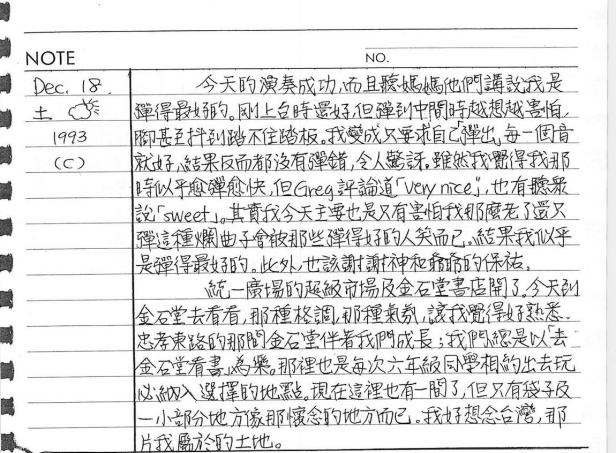 NOTE
NO.
Dec. 18.
土
1993
(C)
今天的演奏成功,而且聽媽媽他們講說我是
彈得最好的。剛上台時還好,但彈到中間時越想越害怕,
腳甚至抖到踏不住踏板。我變成只要求自己「彈出」每一個音
就好,結果反而都沒有彈錯,令人驚訝。雖然我覺得我那
時似乎愈彈愈快,但Greg評論道「very nice」,也有聽眾
說「sweet」。其實我今天主要也是只有害怕我那麼老了還只
彈這種爛曲子會被那些彈得好的人笑而已。結果我似乎
是彈得最好的。此外,也該謝謝神和爺爺的保祐。
統一廣場的超級市場及金石堂書店開了。今天到
金石堂去看看,那種格調,那種氣氛,讓我覺得好熟悉。
忠孝東路的那間金石堂伴著我們成長;我們總是以「去
金石堂看書」為樂。那裡也是每次六年級同學相約出去玩
必納入選擇的地點。現在這裡也有一間了,但只有袋子及
一小部分地方像那懷念的地方而已。我好想念台灣,那
片我屬於的土地。